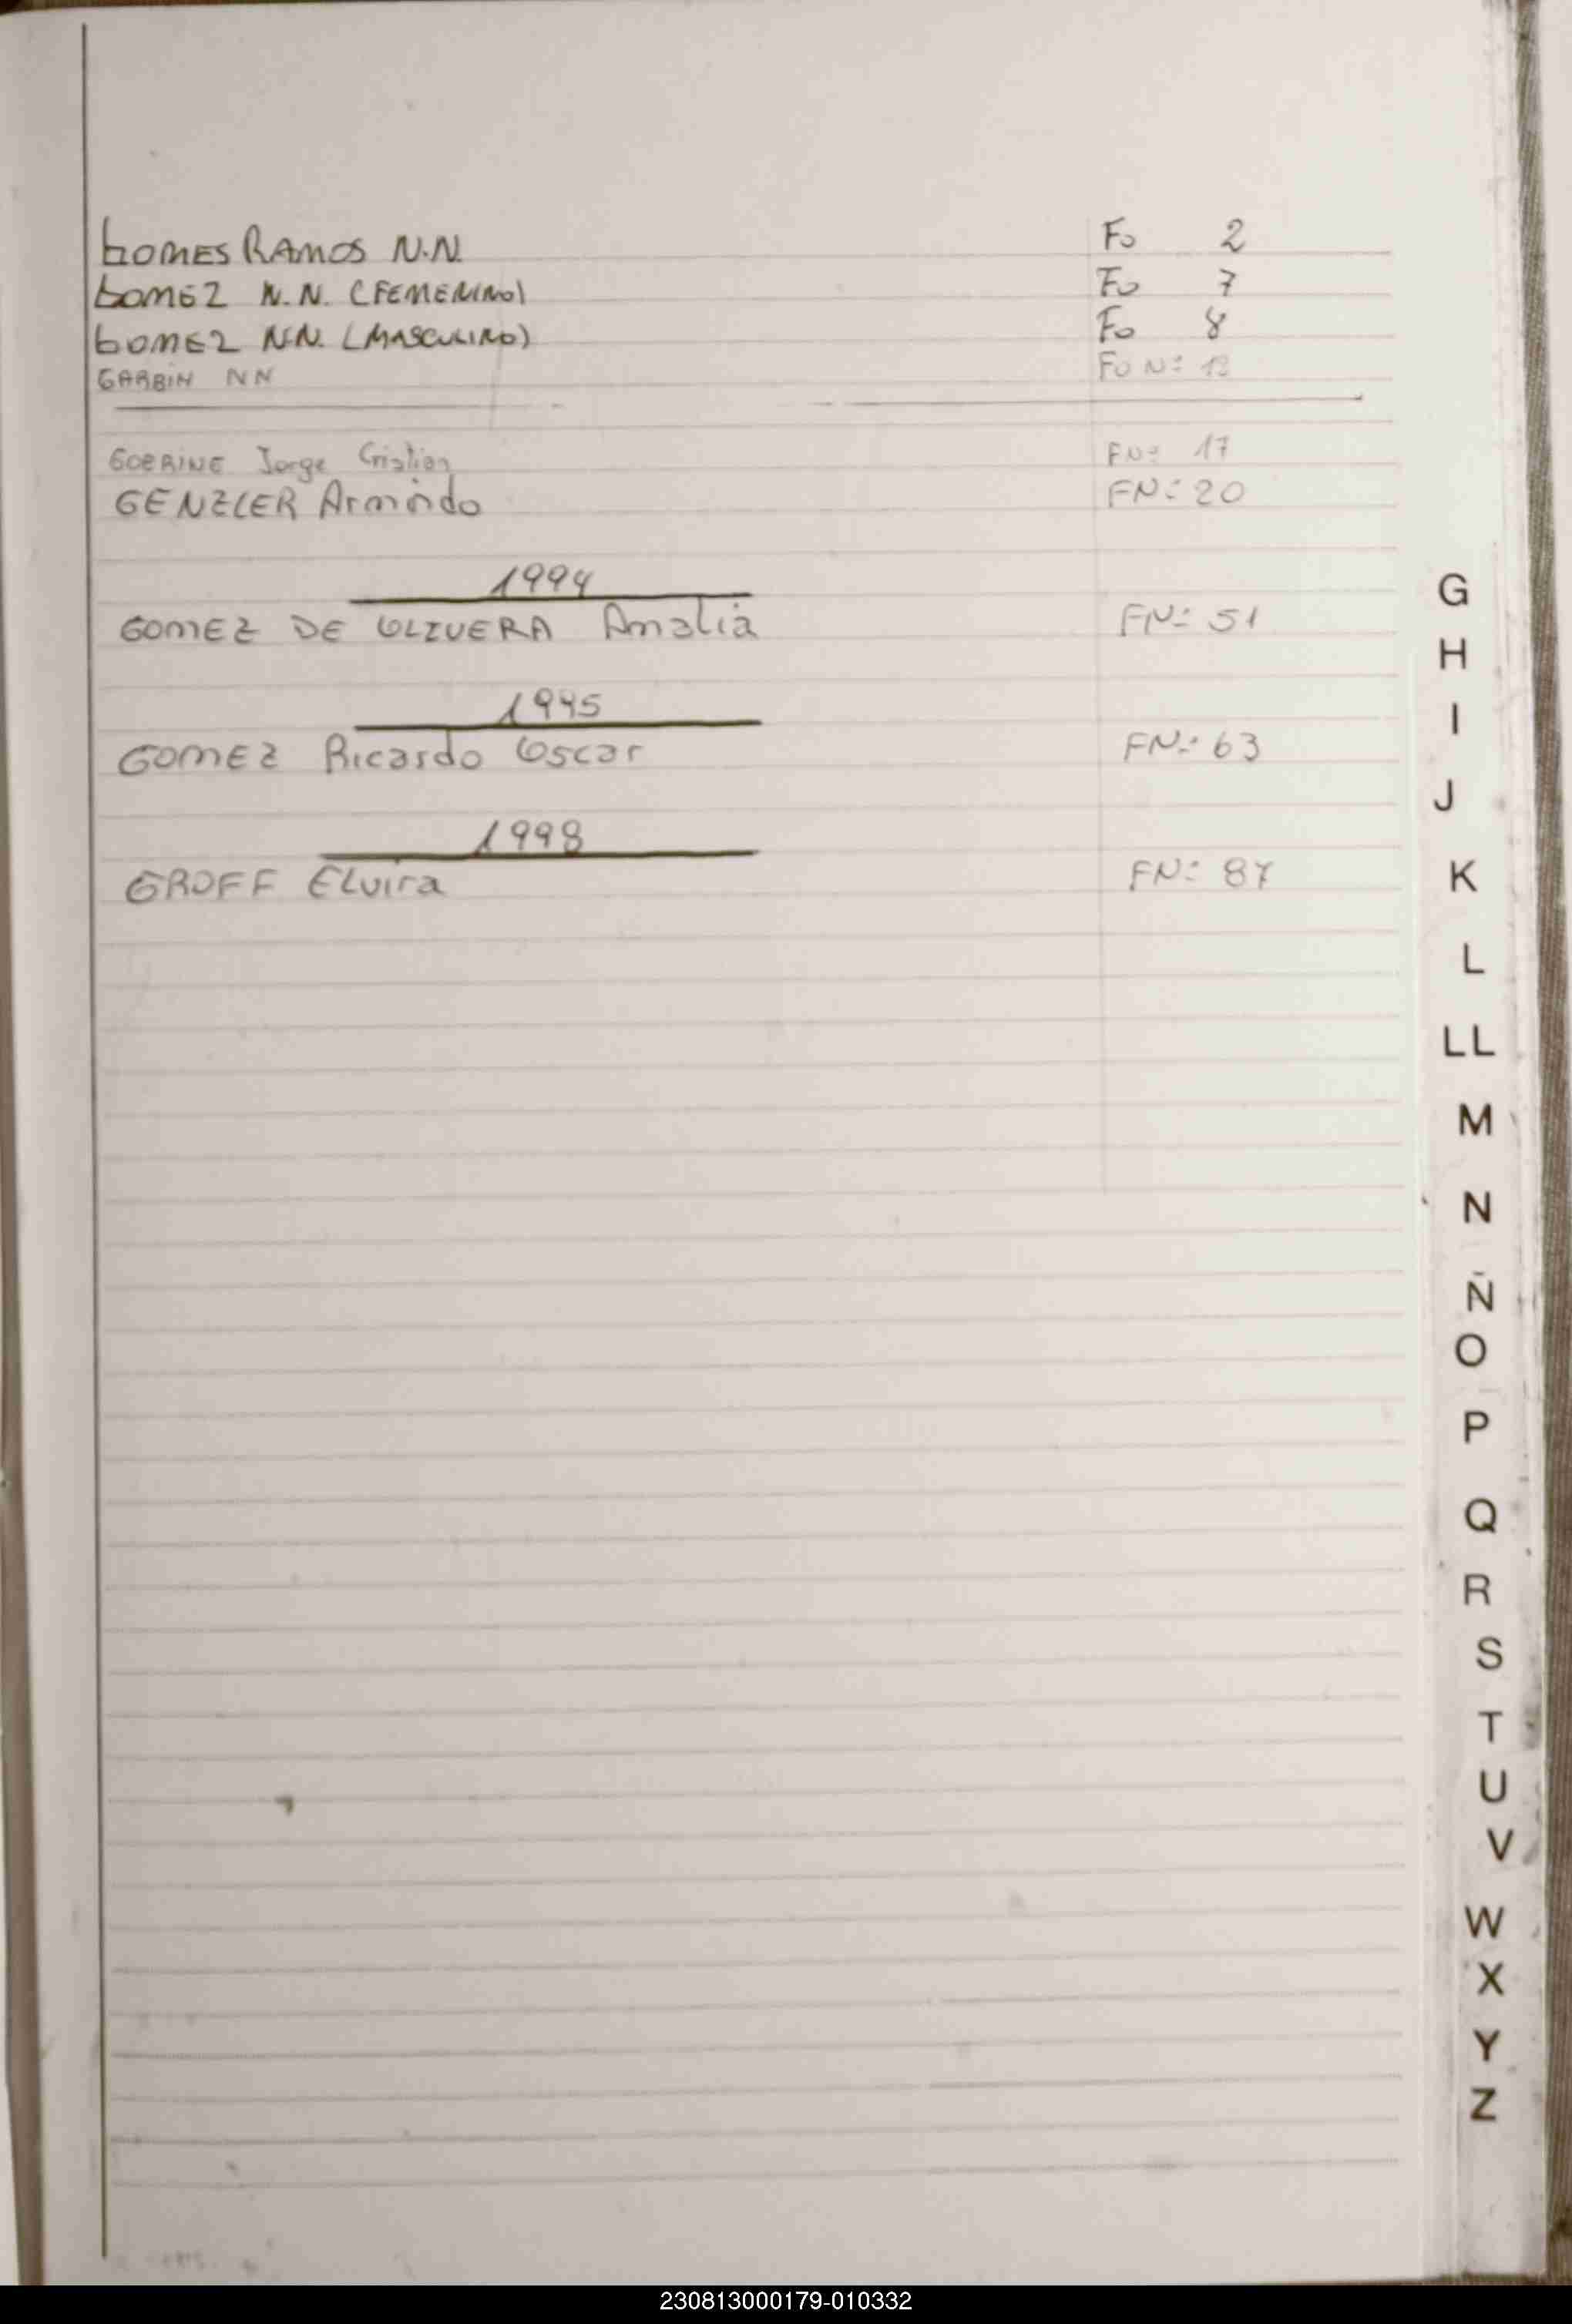 GOMES RAMOS N.N. Fo 2
GOMEZ N.N. (FEMENINO) Fo 7
GOMEZ N.N. (MASCULINO) Fo 8
GARBIN NN Fo Nº
Jorge Cristian FNº 17
GENZLER Armando FNº 20
1994
GOMEZ DE OLIVERA Amalia FNº 51
1995
GOMEZ Ricardo Oscar FNº 63
1998
GROFF Elvira FNº 87
G
H
I
J
K
L
LL
M
N
Ñ
O
P
Q
R
S
T
U
V
W
X
Y
Z
230813000179-010332